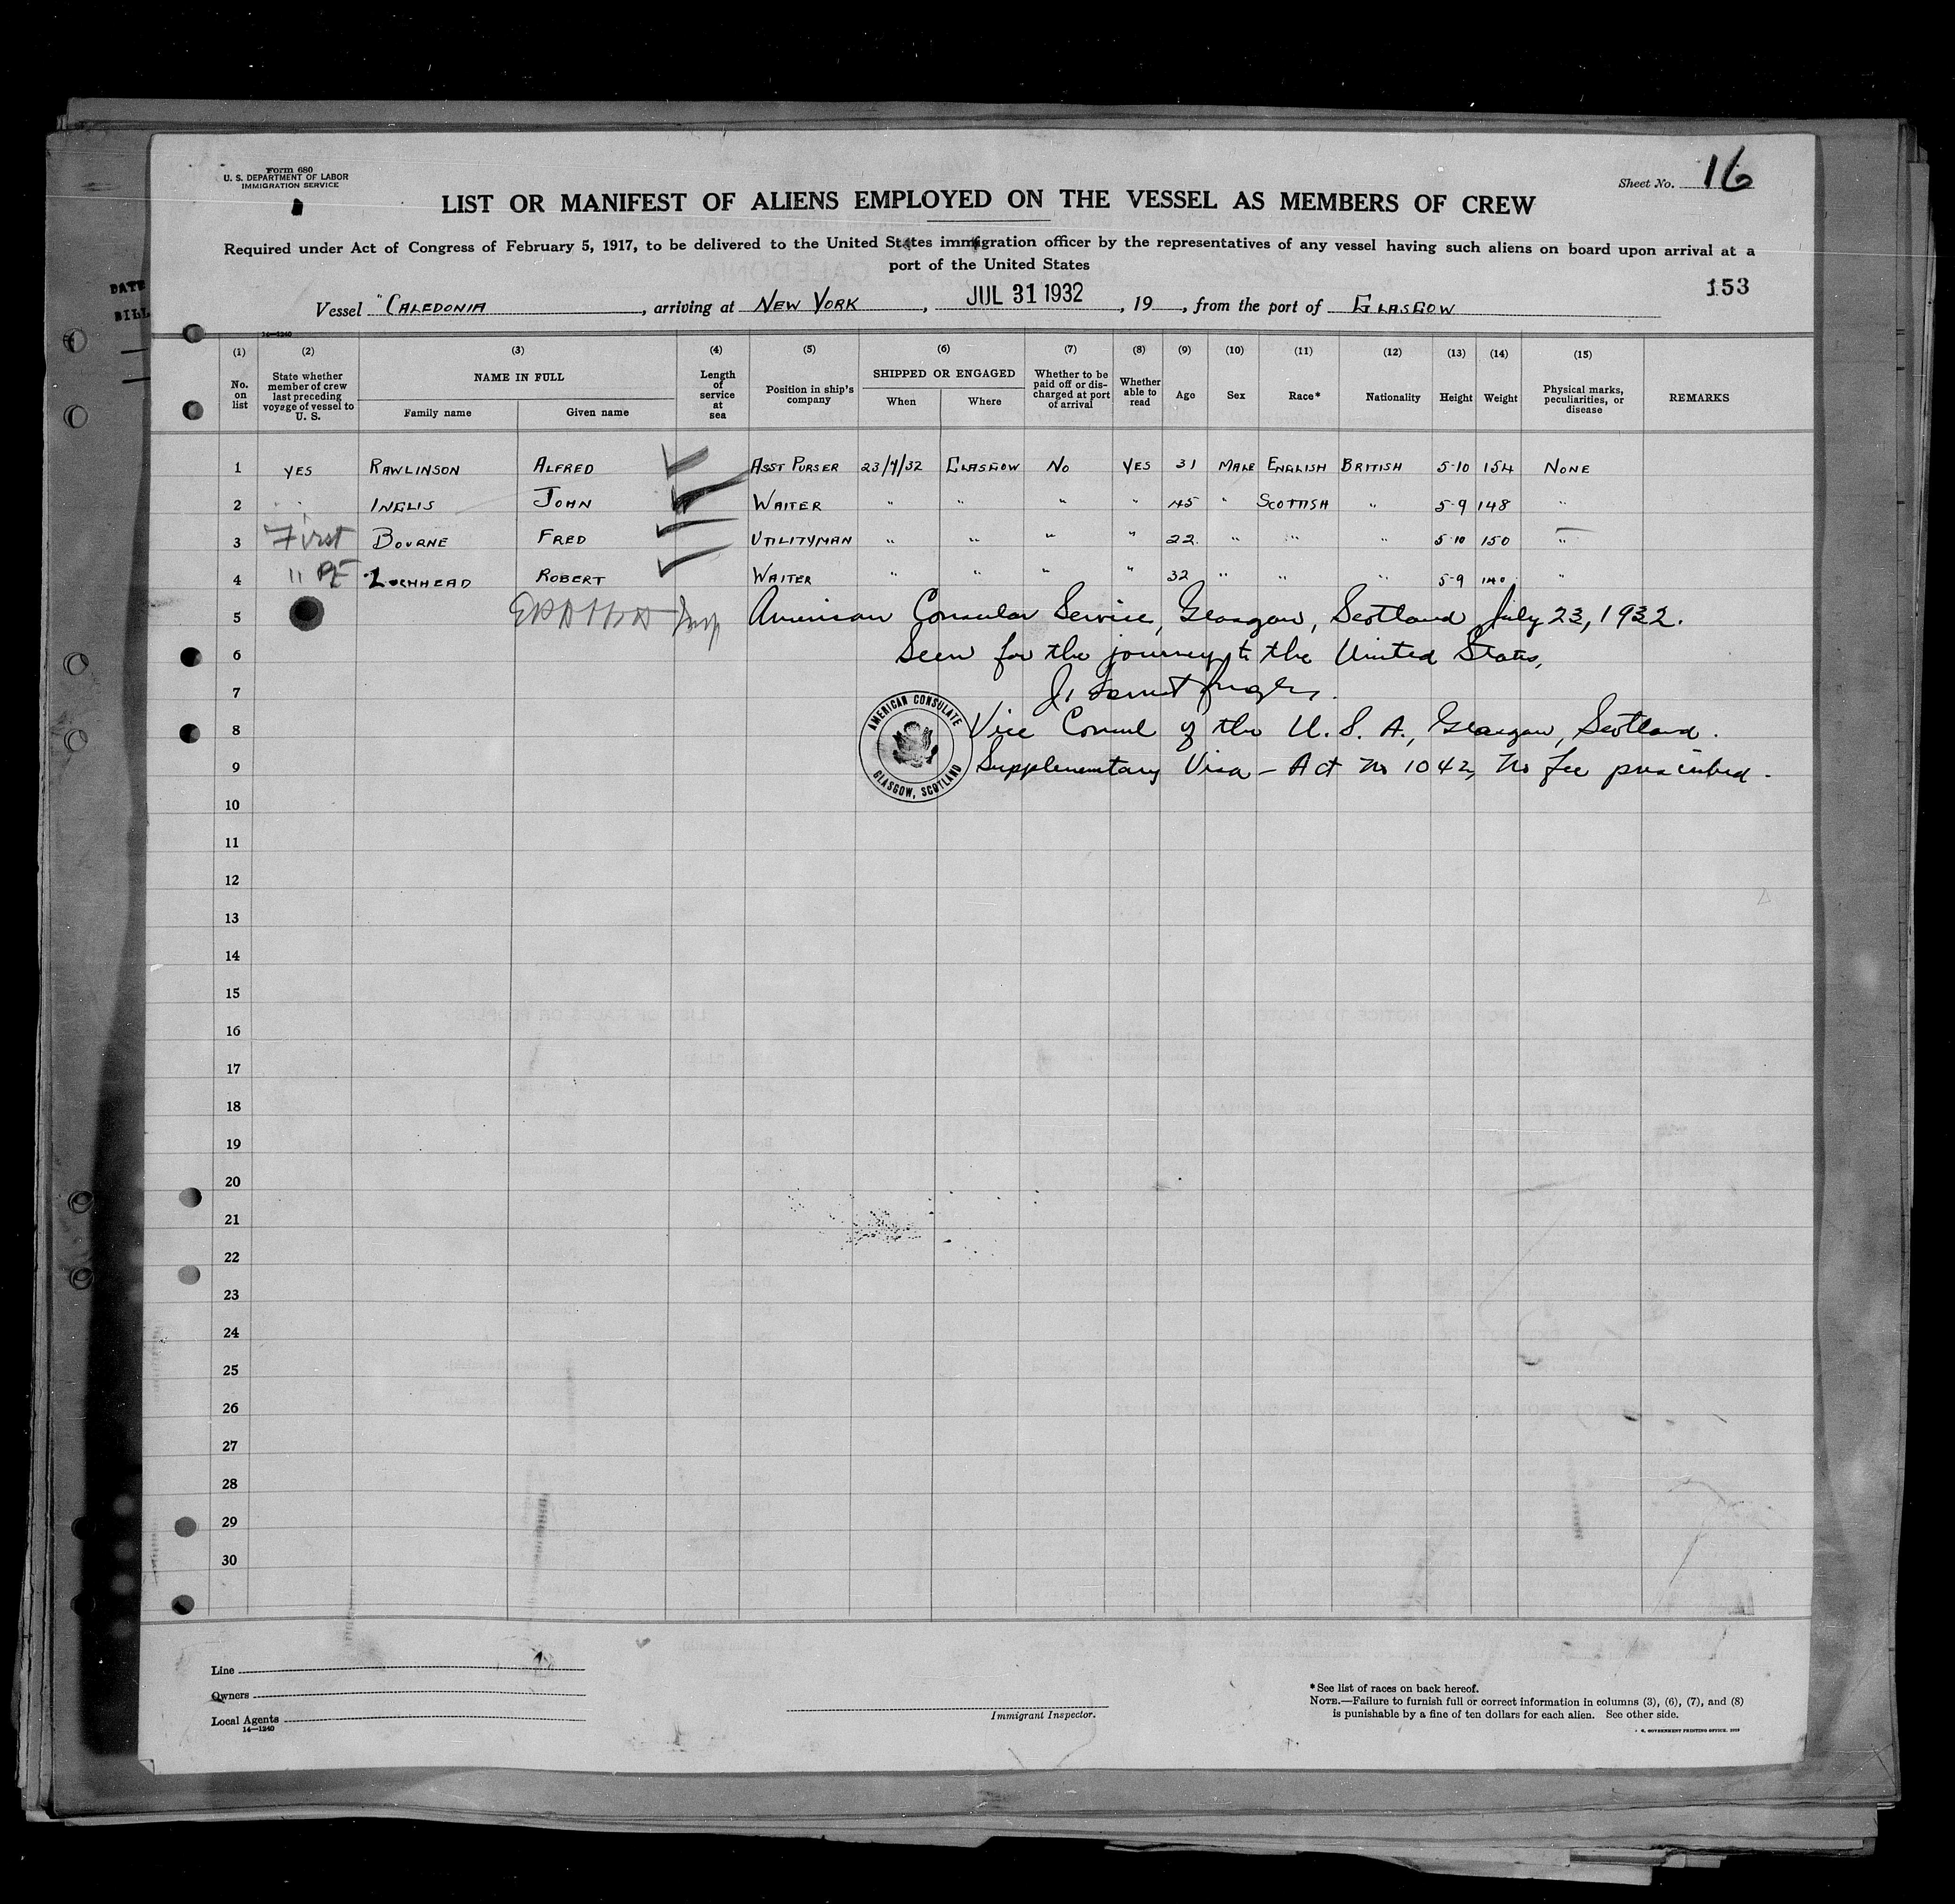 Form 680
U. S. DEPARTMENT OF LABOR
IMMIGRATION SERVICE
Sheet No. 16
LIST OR MANIFEST OF ALIENS EMPLOYED ON THE VESSEL AS MEMBERS OF CREW
Required under Act of Congress of February 5, 1917, to be delivered to the United States immigration officer by the representatives of any vessel having such aliens on board upon arrival at a
port of the United States
153
DATE
BILL
Vessel "CALEDONIA , arriving at NEW YORK , JUL 31 1932 , 19 , from the port of GLASGOW
14—1240
(1) (2) (3) (4) (5) (6) (7) (8) (9) (10) (11) (12) (13) (14) (15)
No. on list State whether member of crew last preceding voyage of vessel to U. S. NAME IN FULL Family name Given name Length of service at sea Position in ship's company SHIPPED OR ENGAGED When Where Whether to be paid off or discharged at port of arrival Whether able to read Age Sex Race* Nationality Height Weight Physical marks, peculiarities, or disease REMARKS
1 YES RAWLINSON ALFRED ASST PURSER 23/7/32 GLASGOW NO YES 31 MALE ENGLISH BRITISH 5-10 154 NONE
2 " INGLIS JOHN WAITER " " " " 45 " SCOTTISH " 5-9 148 "
3 First BOURNE FRED UTILITYMAN " " " " 22 " " " 5-10 150 "
4 " LOCHHEAD ROBERT WAITER " " " " 32 " " " 5-9 140 "
5 American Consular Service, Glasgow, Scotland July 23, 1932.
6 Seen for the journey to the United States,
7
8 Vice Consul of the U. S. A., Glasgow, Scotland.
9 Supplementary Visa - Act No 1042, No fee prescribed.
AMERICAN CONSULATE
GLASGOW, SCOTLAND
10
11
12
13
14
15
16
17
18
19
20
21
22
23
24
25
26
27
28
29
30
Line
Owners
Local Agents
14—1240
Immigrant Inspector.
*See list of races on back hereof.
NOTE.—Failure to furnish full or correct information in columns (3), (6), (7), and (8)
is punishable by a fine of ten dollars for each alien. See other side.